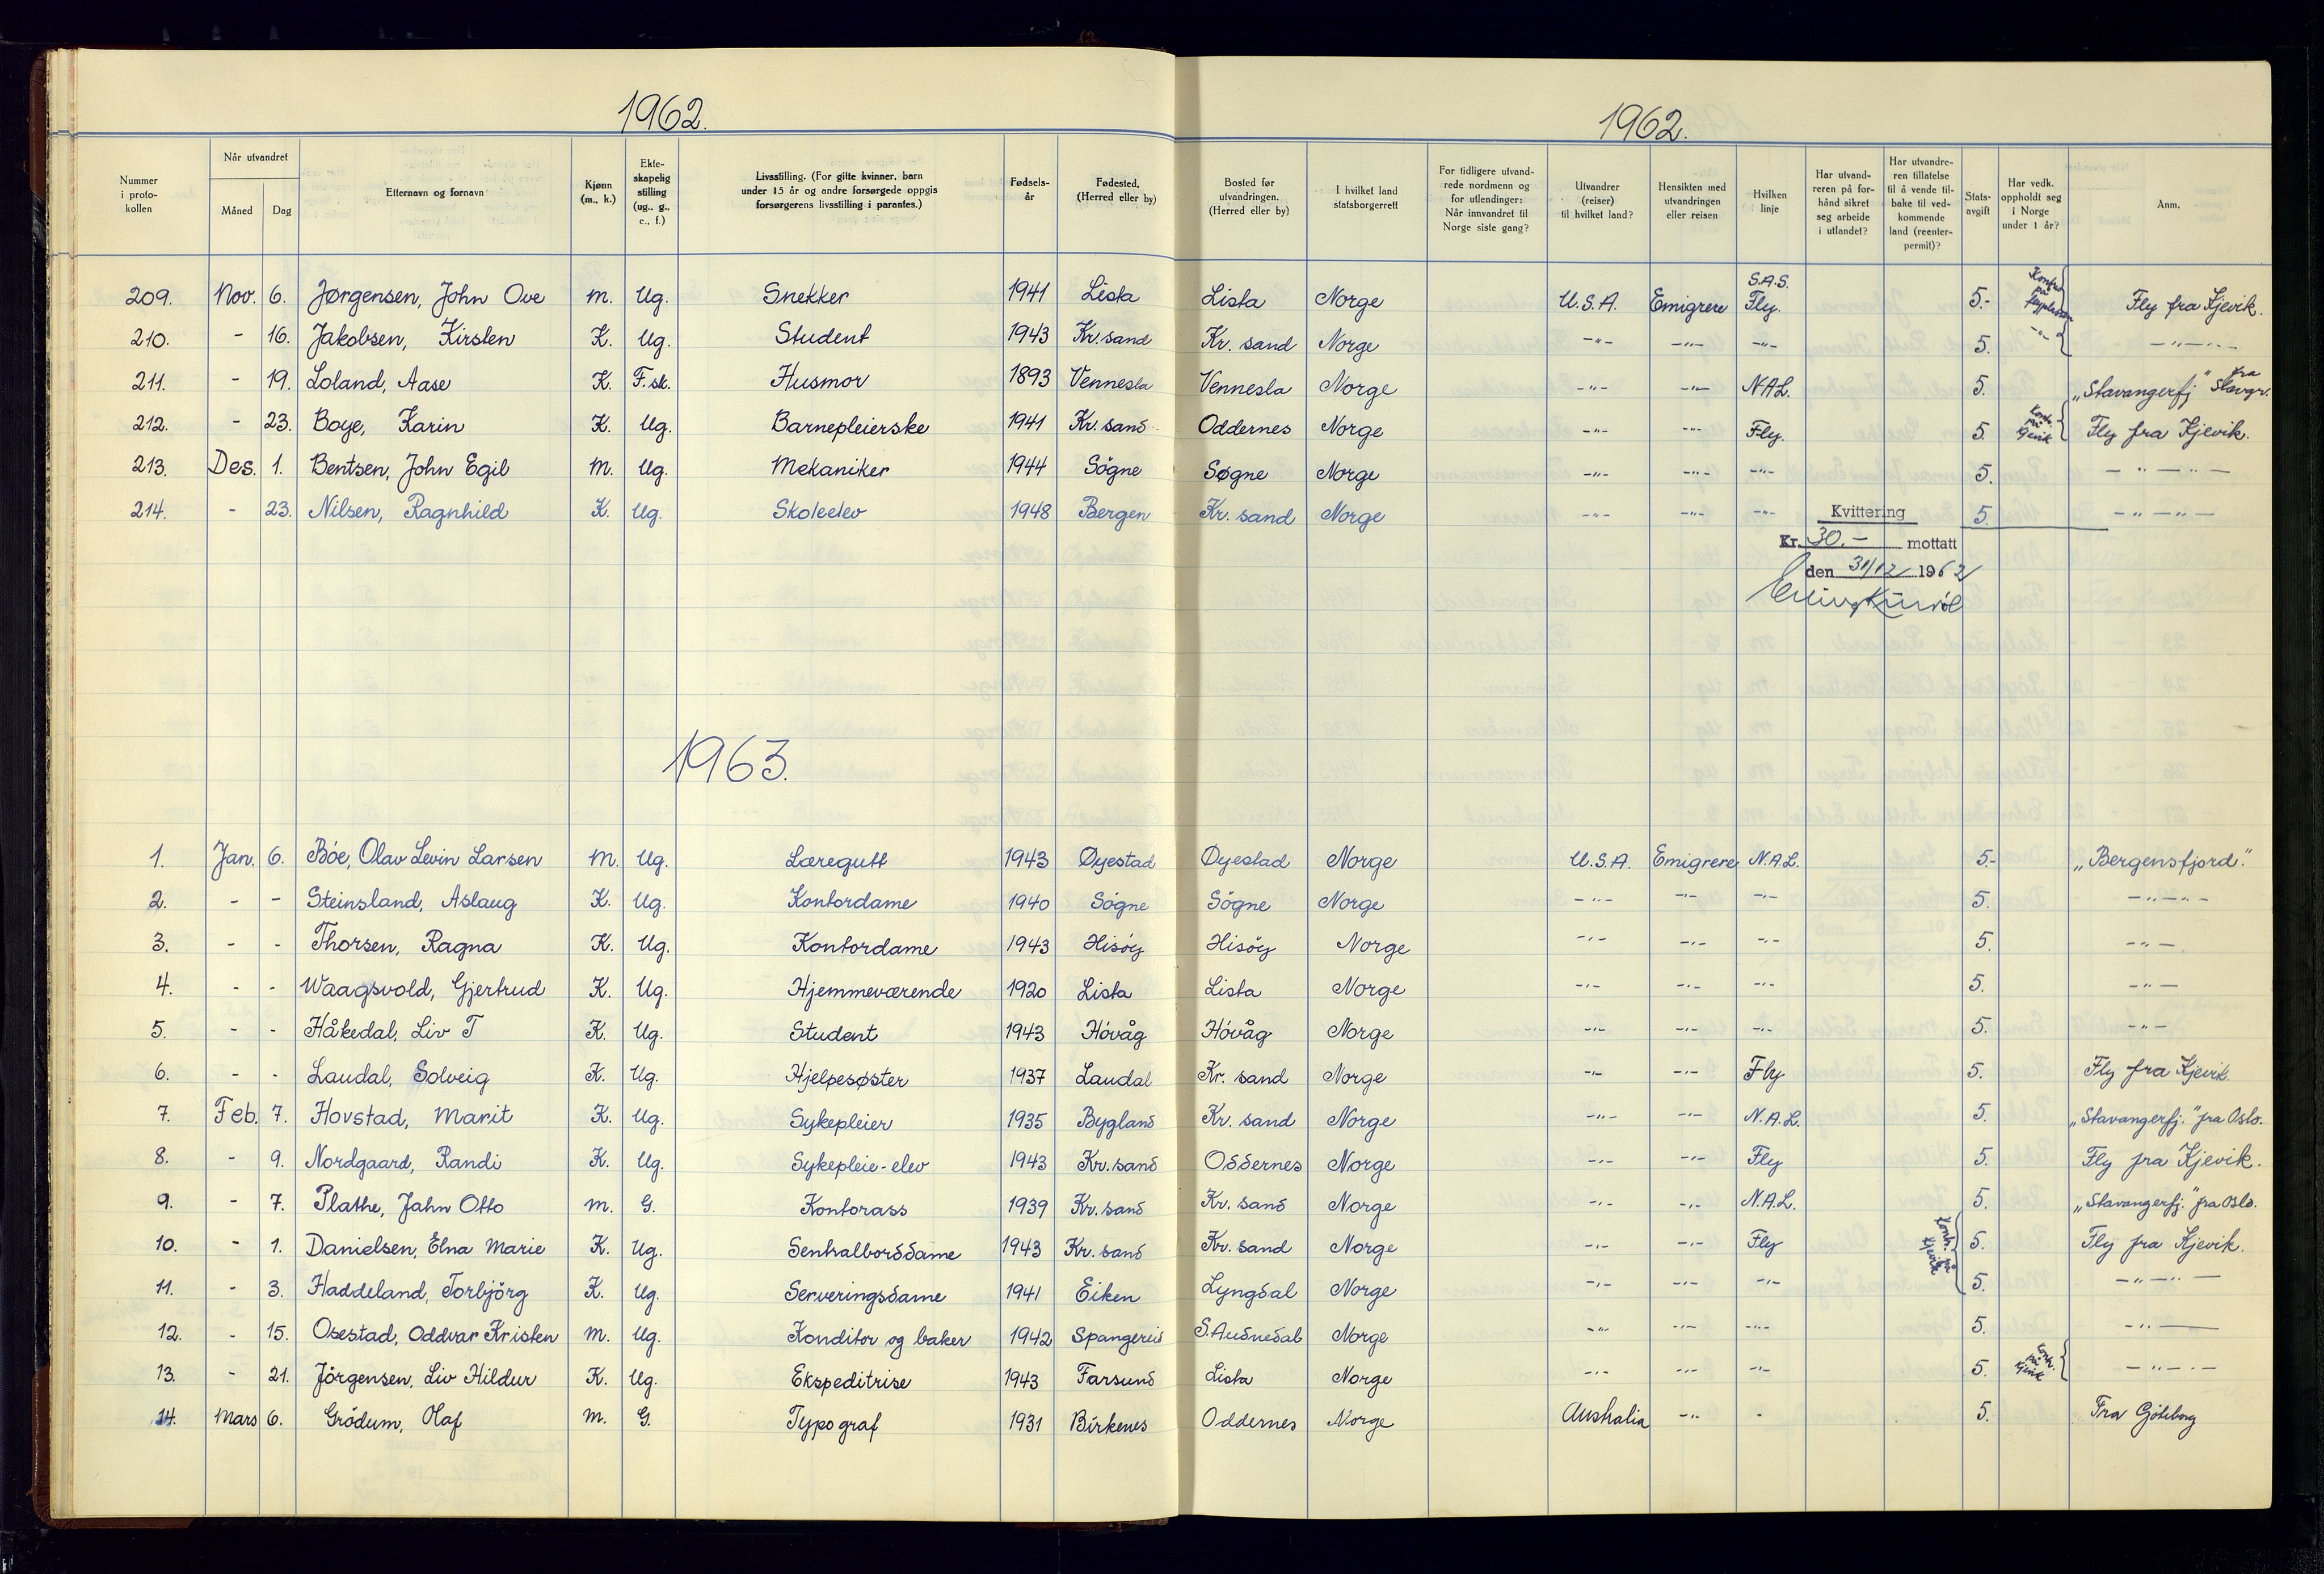 1962.
1962.
Nummer i proto-kollen | Når utvandret Måned | Dag | Etternavn og fornavn | Kjønn (m., k.) | Ekte-skapelig stilling (ug., g., e., f.) | Livsstilling. (For gifte kvinner, barn under 15 år og andre forsørgede oppgis forsørgerens livsstilling i parantes.) | Fødsels-år | Fødested. (Herred eller by) | Bosted før utvandringen. (Herred eller by) | I hvilket land statsborgerrett | For tidligere utvand-rede nordmenn og for utlendinger: Når innvandret til Norge siste gang? | Utvandrer (reiser) til hvilket land? | Hensikten med utvandringen eller reisen | Hvilken linje | Har utvand-reren på for-hånd sikret seg arbeide i utlandet? | Har utvandre-ren tillatelse til å vende til-bake til ved-kommende land (reenter-permit)? | Stats-avgift | Har vedk. oppholdt seg i Norge under 1 år? | Anm.
209. Nov. 6. Jørgensen, John Ove m. Ug. Snekker 1941 Lista Lista Norge U.S.A. Emigrere S.A.S. Fly. 5.- Fly fra Kjevik.
210. - 16. Jakobsen, Kirsten K. Ug. Student 1943 Kr.sand Kr. sand Norge -"- -"- -"- 5. -"- -"-
211. - 19. Loland, Aase K. F.sk. Husmor 1893 Vennesla Vennesla Norge -"- -"- N.A.L. 5. „Stavangerfj" fra Stavgr.
212. - 23. Boye, Karin K. Ug. Barnepleierske 1941 Kr.sand Oddernes Norge -"- -"- Fly. 5. Kontr. på Kjevik Fly fra Kjevik.
213. Des. 1. Bentsen, John Egil m. Ug. Mekaniker 1944 Sögne Søgne Norge -"- -"- -"- 5. -"-"-
214. - 23. Nilsen, Ragnhild K. Ug. Skoleelev 1948 Bergen Kr. sand Norge -"- -"- -"- 5. -"-"-
Kvittering
Kr. 30.- mottatt
den 31/12 1962
1963.
1. Jan. 6. Böe, Olav Levin Larsen m. Ug. Læregutt 1943 Øyestad Øyestad Norge U.S.A. Emigrere N.A.L. 5.- „Bergensfjord."
2. - - Steinsland, Aslaug K. Ug. Kontordame 1940 Sögne Sögne Norge -"- -"- -"- 5. -"-"-
3. - - Thorsen, Ragna K. Ug. Kontordame 1943 Hisöy Hisöy Norge -"- -"- -"- 5. -"-
4. - - Waagsvold, Gjertrud K. Ug. Hjemmeværende 1920 Lista Lista Norge -"- -"- -"- 5. -"-
5. - - Håkedal, Liv T K. Ug. Student 1943 Hövåg Hövåg Norge -"- -"- -"- 5. -"-
6. - - Laudal, Solveig K. Ug. Hjelpesøster 1937 Laudal Kr. sand Norge -"- -"- Fly 5. Fly fra Kjevik.
7. Feb. 7. Hovstad, Marit K. Ug. Sykepleier 1935 Bygland Kr. sand Norge -"- -"- N.A.L. 5. „Stavangerfj." fra Oslo.
8. - 9. Nordgaard, Randi K. Ug. Sykepleie-elev 1943 Kr.sand Oddernes Norge -"- -"- Fly 5. Fly fra Kjevik.
9. - 7. Plathe, Jahn Otto m. G. Kontorass 1939 Kr.sand Kr. sand Norge -"- -"- N.A.L. 5. „Stavangerfj." fra Oslo.
10. - 1. Danielsen, Elna Marie K. Ug. Sentralborddame 1943 Kr. sand Kr. sand Norge -"- -"- Fly Kontr. på Kjevik 5. Fly fra Kjevik.
11. - 3. Haddeland, Torbjörg K. Ug. Serveringsdame 1941 Eiken Lyngdal Norge -"- -"- -"- 5. -"-"-
12. - 15. Osestad, Oddvar Kristen m. Ug. Konditor og baker 1942 Spangereid S.Audnedal Norge -"- -"- -"- 5. -"-
13. - 21. Jörgensen, Liv Hildur K. Ug. Ekspeditrise 1943 Farsund Lista Norge -"- -"- -"- 5. Kontr. på Kjevik -"-"-
14. Mars 6. Grödum, Olaf m. G. Typograf 1931 Birkenes Oddernes Norge Australia -"- - 5. Fra Göteborg